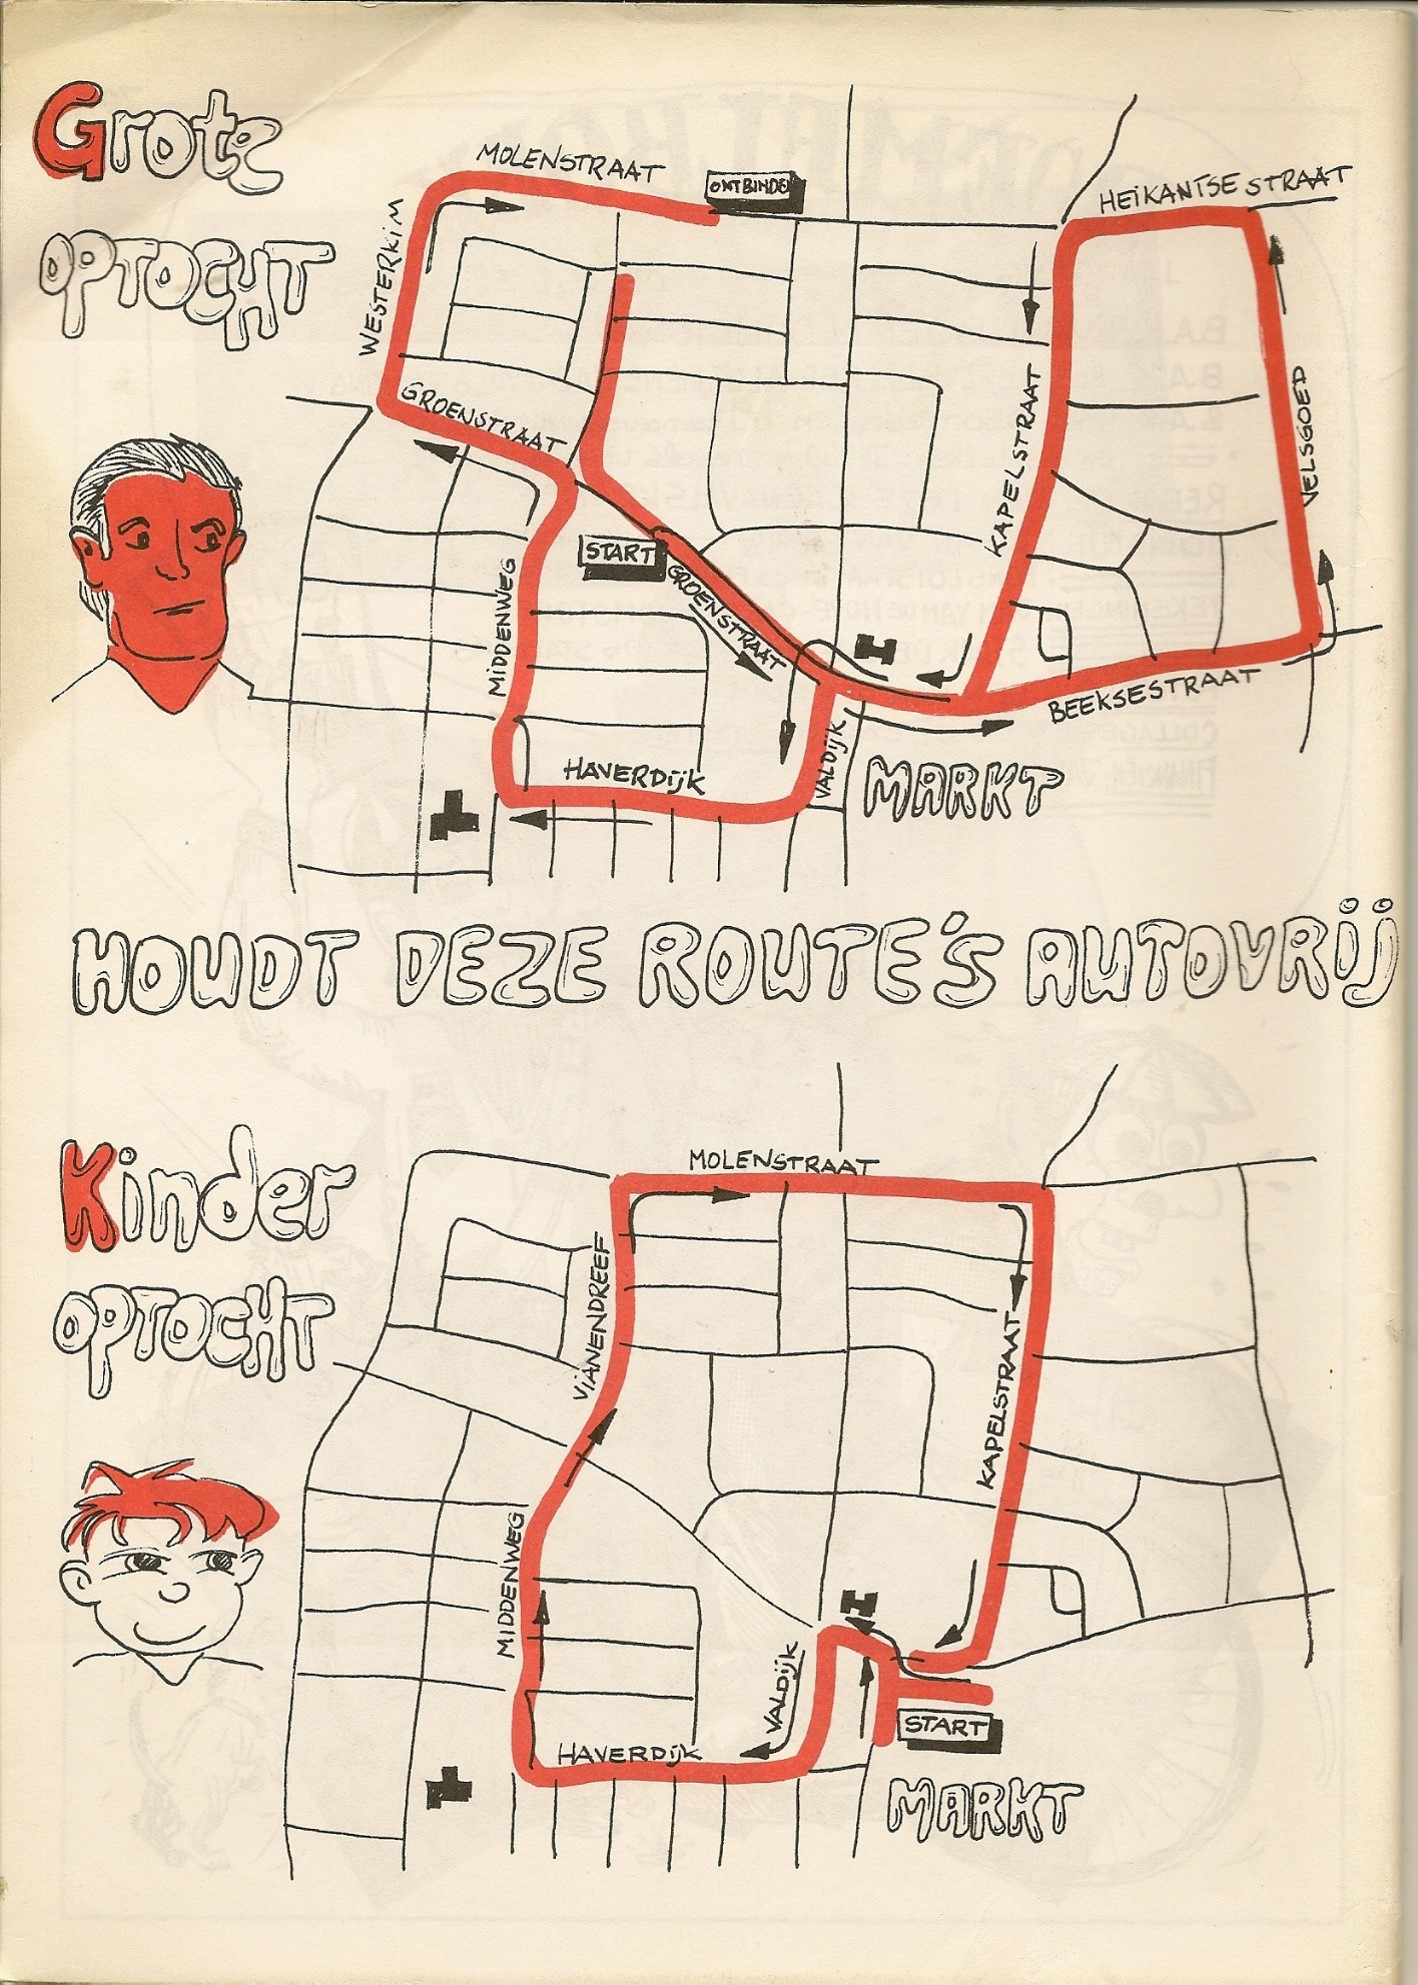 Grote
OPTOCHT
MOLENSTRAAT
ONTBINDEN
HEIKANTSE STRAAT
WESTERKIM
GROENSTRAAT
KAPELSTRAAT
VELSGOED
START
GROENSTRAAT
MIDDENWEG
BEEKSESTRAAT
VALDIJK
HAVERDIJK
MARKT
HOUDT DEZE ROUTE'S AUTOVRIJ
Kinder
OPTOCHT
MOLENSTRAAT
VIANENDREEF
KAPELSTRAAT
MIDDENWEG
VALDIJK
START
HAVERDIJK
MARKT